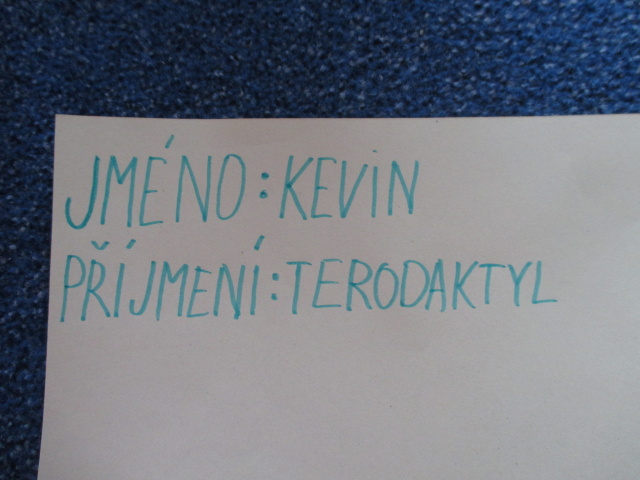 JMÉNO:KEViN
PŘÍJMENÍ:TERODAKTYL